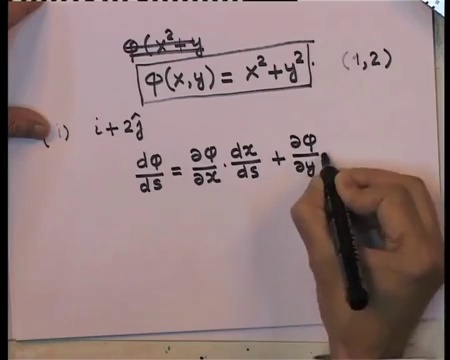 φ(x²+y
φ(x,y) = x²+y². (1,2)
(i) i+2ĵ
dφ/ds = ∂φ/∂x · dx/ds + ∂φ/∂y